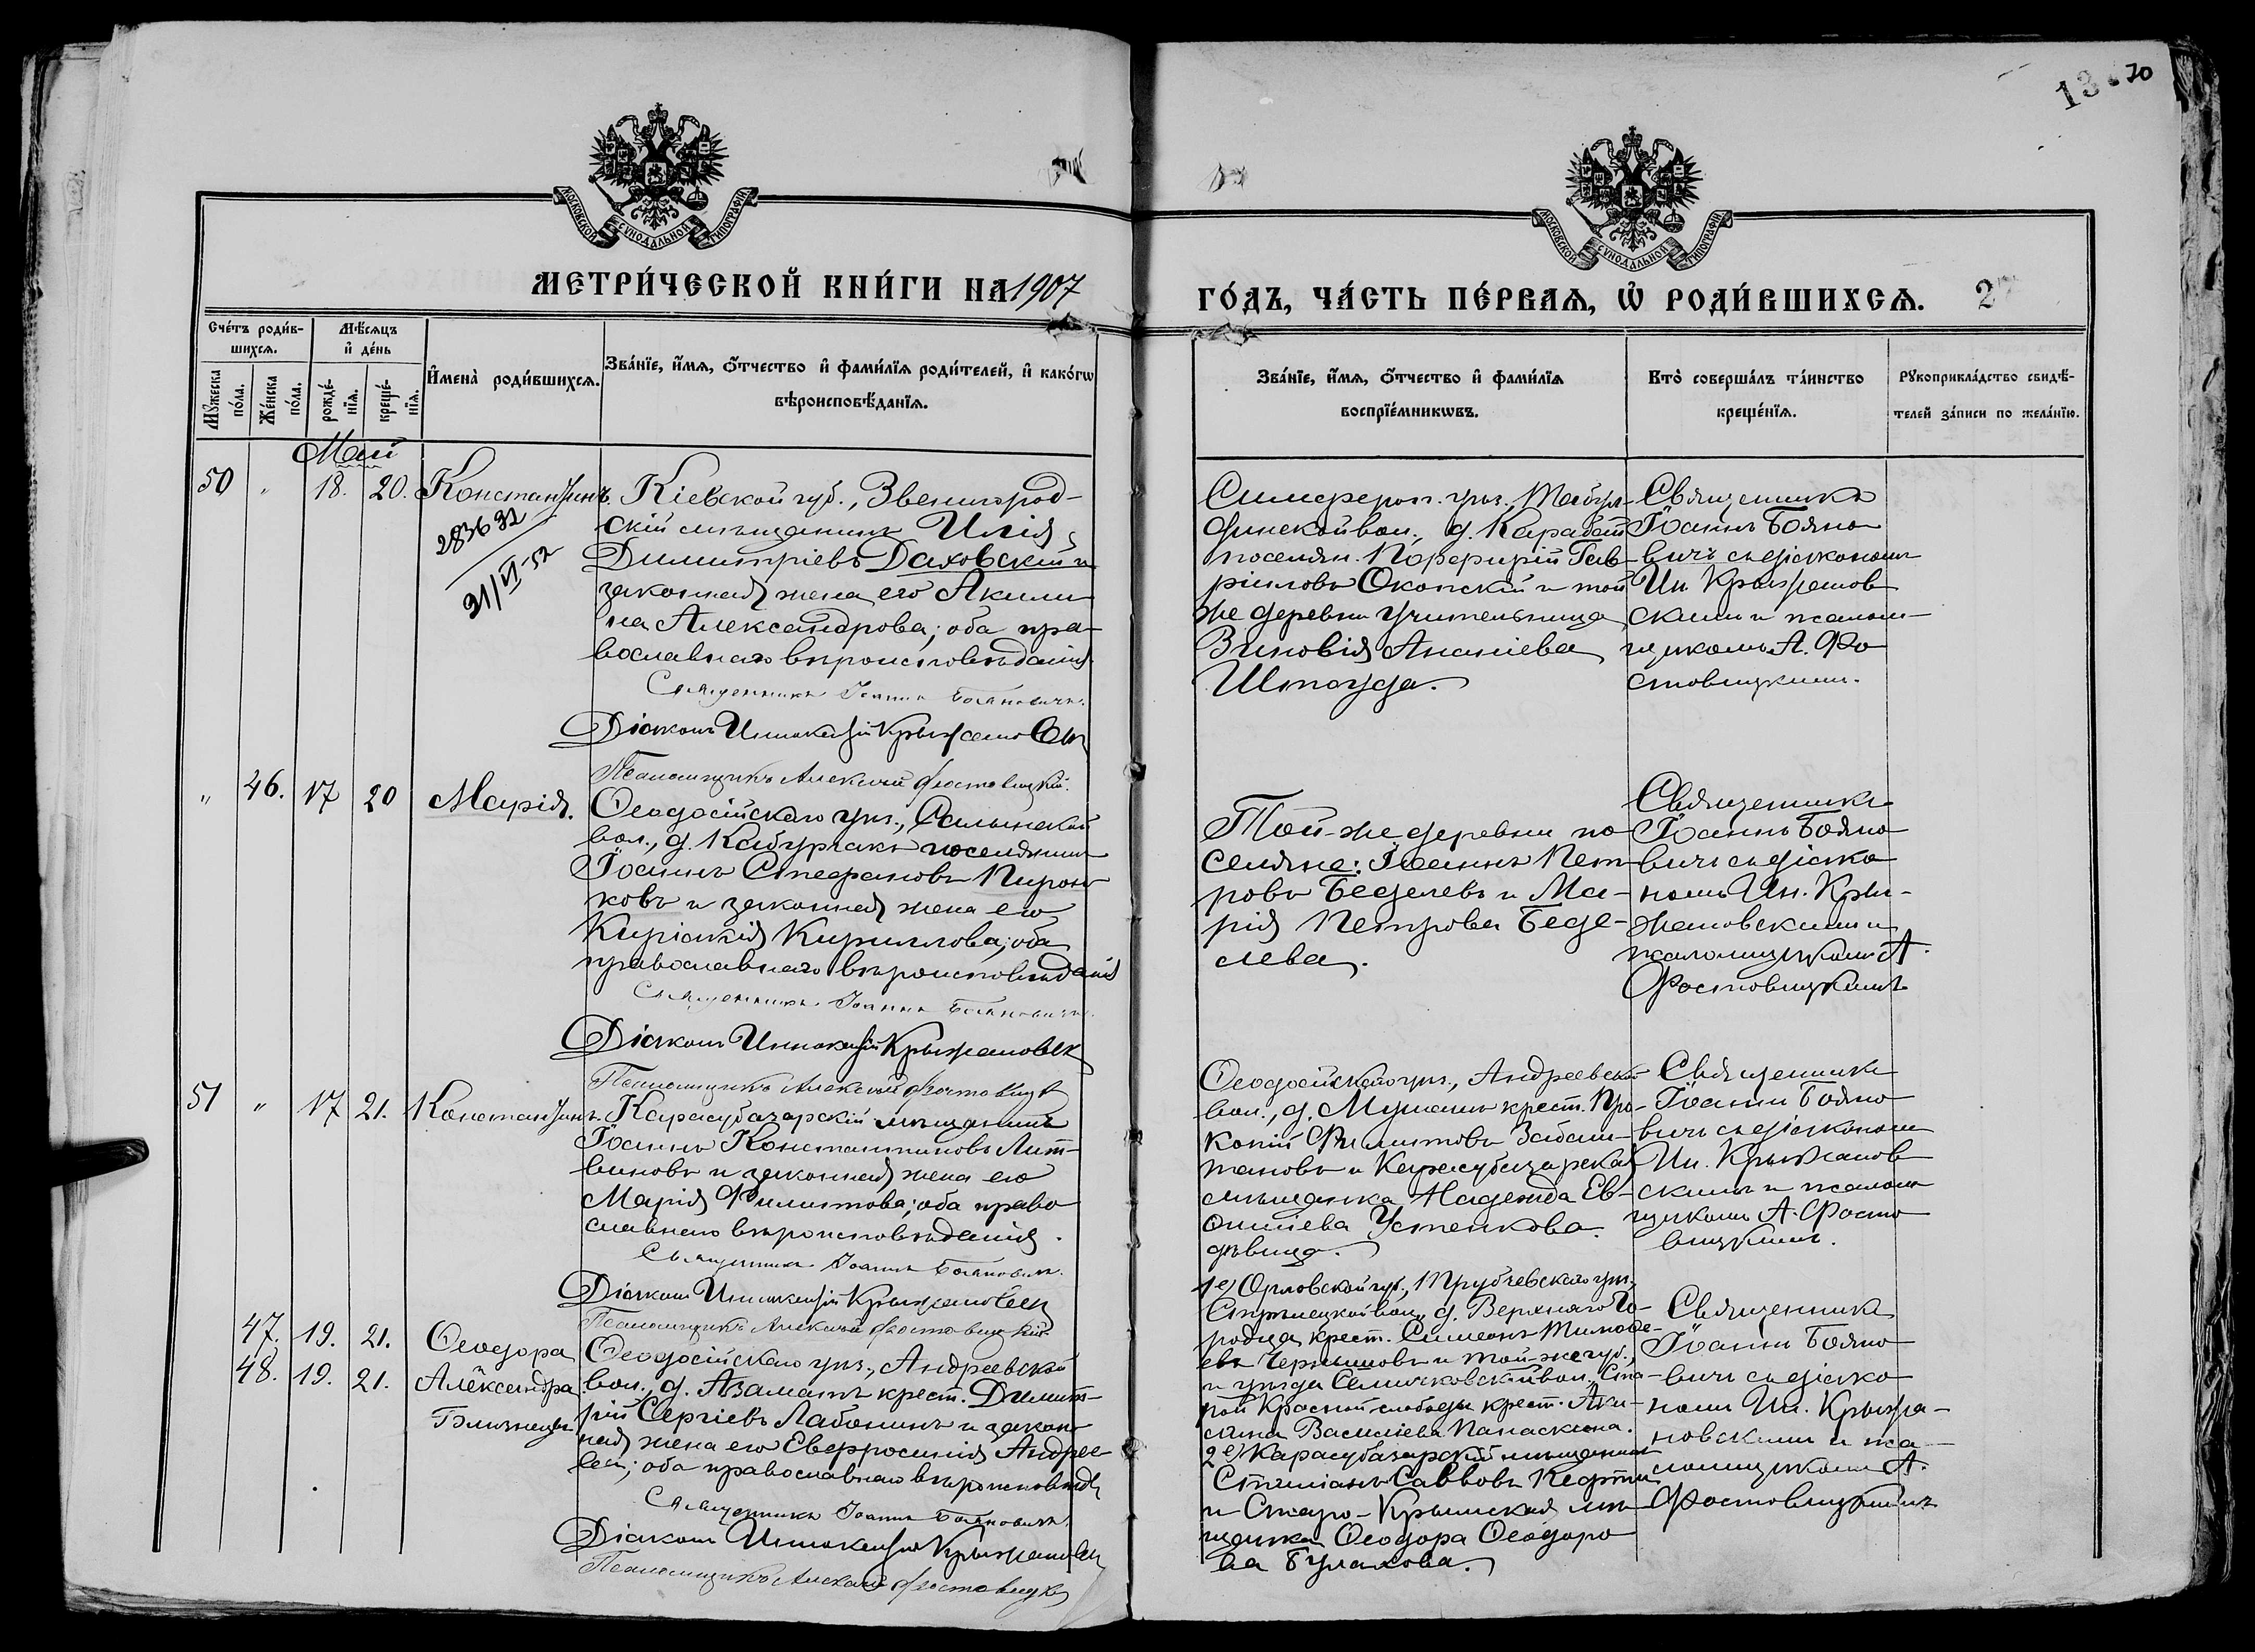 13 70
МОСКОВСКОЙ СѴНОДАЛЬНОЙ ТИПОГРАФІИ
МОСКОВСКОЙ СѴНОДАЛЬНОЙ ТИПОГРАФІИ
МЕТРИ́ЧЕСКОЙ КНИ́ГИ НА 1907
ГО́ДЪ, ЧА́СТЬ ПЕ́РВАѦ, Ѡ РОДИ́ВШИХСѦ. 27
Сче́тъ роди́в-
шихсѧ.
Мѣ́сѧцъ
и҆ де́нь
Мꙋ́жеска
по́ла.
Же́нска
по́ла.
рожде́-
нїѧ.
креще́-
нїѧ.
И҆мена̀ роди́вшихсѧ.
Зва́нїе, и҆́мѧ, ѻ҆́тчество и҆ фами́лїѧ роди́телей, и҆ како́гѡ
вѣроисповѣ́данїѧ.
Зва́нїе, и҆́мѧ, ѻ҆́тчество и҆ фами́лїѧ
воспрїе́мникѡвъ.
Кто̀ соверша́лъ та́инство
креще́нїѧ.
Рꙋкоприкла́дство свидѣ́-
телей за́писи по жела́нїю.
Май
50 " 18. 20. Константинъ.
283632
31/VI-52
Кіевской губ., Звенигород-
скій мѣщанинъ Илія
Димитріевъ Даховскій и
законная жена его Акили-
на Александрова; оба пра-
вославнаго вѣроисповѣданія.
Священникъ Іоаннъ Бояновичъ.
Діаконъ Иннокентій Крыжановск
Псаломщикъ Алексѣй Фостовицкій.
Симфероп. уѣз., Табул-
динской вол., д. Карабай
поселян. Порфирій Гав-
ріиловъ Оконскій и той
же деревни учительница
Зиновія Ананіева
Шпогуда.
Священникъ
Іоаннъ Бояно-
вичъ съ діакономъ
Ин. Крыжанов-
скимъ и псалом-
щикомъ А. Фо-
стовицкимъ.
" 46. 17 20 Марія.
Ѳеодосійскаго уѣз., Салынской
вол., д. Кабурчакъ поселянинъ
Іоаннъ Стефановъ Пирон-
ковъ и законная жена его
Киріакія Кириллова; оба
православнаго вѣроисповѣданія
Священникъ Іоаннъ Бояновичъ.
Діаконъ Иннокентій Крыжановск
Псаломщикъ Алексѣй Фостовицк
Той-же деревни по-
селяне: Іоаннъ Пет-
ровъ Беделевъ и Ма-
рія Петрова Беде-
лева.
Священникъ
Іоаннъ Бояно-
вичъ съ діако-
номъ Ин. Кры-
жановскимъ и
псаломщикомъ А.
Фостовицкимъ
51 " 17 21. Константинъ.
Карасубазарскій мѣщанинъ
Іоаннъ Константиновъ Лит-
виновъ и законная жена его
Марія Филиппова; оба право-
славнаго вѣроисповѣданія.
Священникъ Іоаннъ Бояновичъ.
Діаконъ Иннокентій Крыжановск
Псаломщикъ Алексѣй Фостовицкій
Ѳеодосійскаго уѣз., Андреевской
вол., д. Мушашъ крест. Про-
копій Филипповъ Забаш-
тановъ и Карасубазарская
мѣщанка Надежда Ев-
фиміева Устенкова.
дѣвица.
Священникъ
Іоаннъ Бояно-
вичъ съ діакономъ
Ин. Крыжанов-
скимъ и псалом-
щикомъ А. Фосто-
вицкимъ.
47. 19. 21. Ѳеодора
48. 19. 21. Александра
Близнецы
Ѳеодосійскаго уѣз., Андреевской
вол., д. Азаматъ крест. Димит-
рій Сергіевъ Лабонинъ и закон-
ная жена его Евфросинія Андрее-
ва; оба православнаго вѣроисповѣд
Священникъ Іоаннъ Бояновичъ.
Діаконъ Иннокентій Крыжановск
Псаломщикъ Алексѣй Фостовицк
1е) Орловской губ., Трубчевскаго уѣз.
Стрѣлецкой вол., д. Верхняго Го-
родца крест. Симеонъ Тимофе-
евъ Чернышовъ и той-же губ.,
и уѣзда Семячковской вол., Ста-
рой Красной слободы крест. Аки-
лина Васильева Панаскина.
2е) Карасубазарскій мѣщанинъ
Стиліанъ Савковъ Кефтли
и Старо-Крымская мѣ-
щанка Ѳеодора Ѳеодоро-
ва Булахова.
Священникъ
Іоаннъ Бояно-
вичъ съ діако-
номъ Ин. Крыжа-
новскимъ и пса-
ломщикомъ А.
Фостовицкимъ